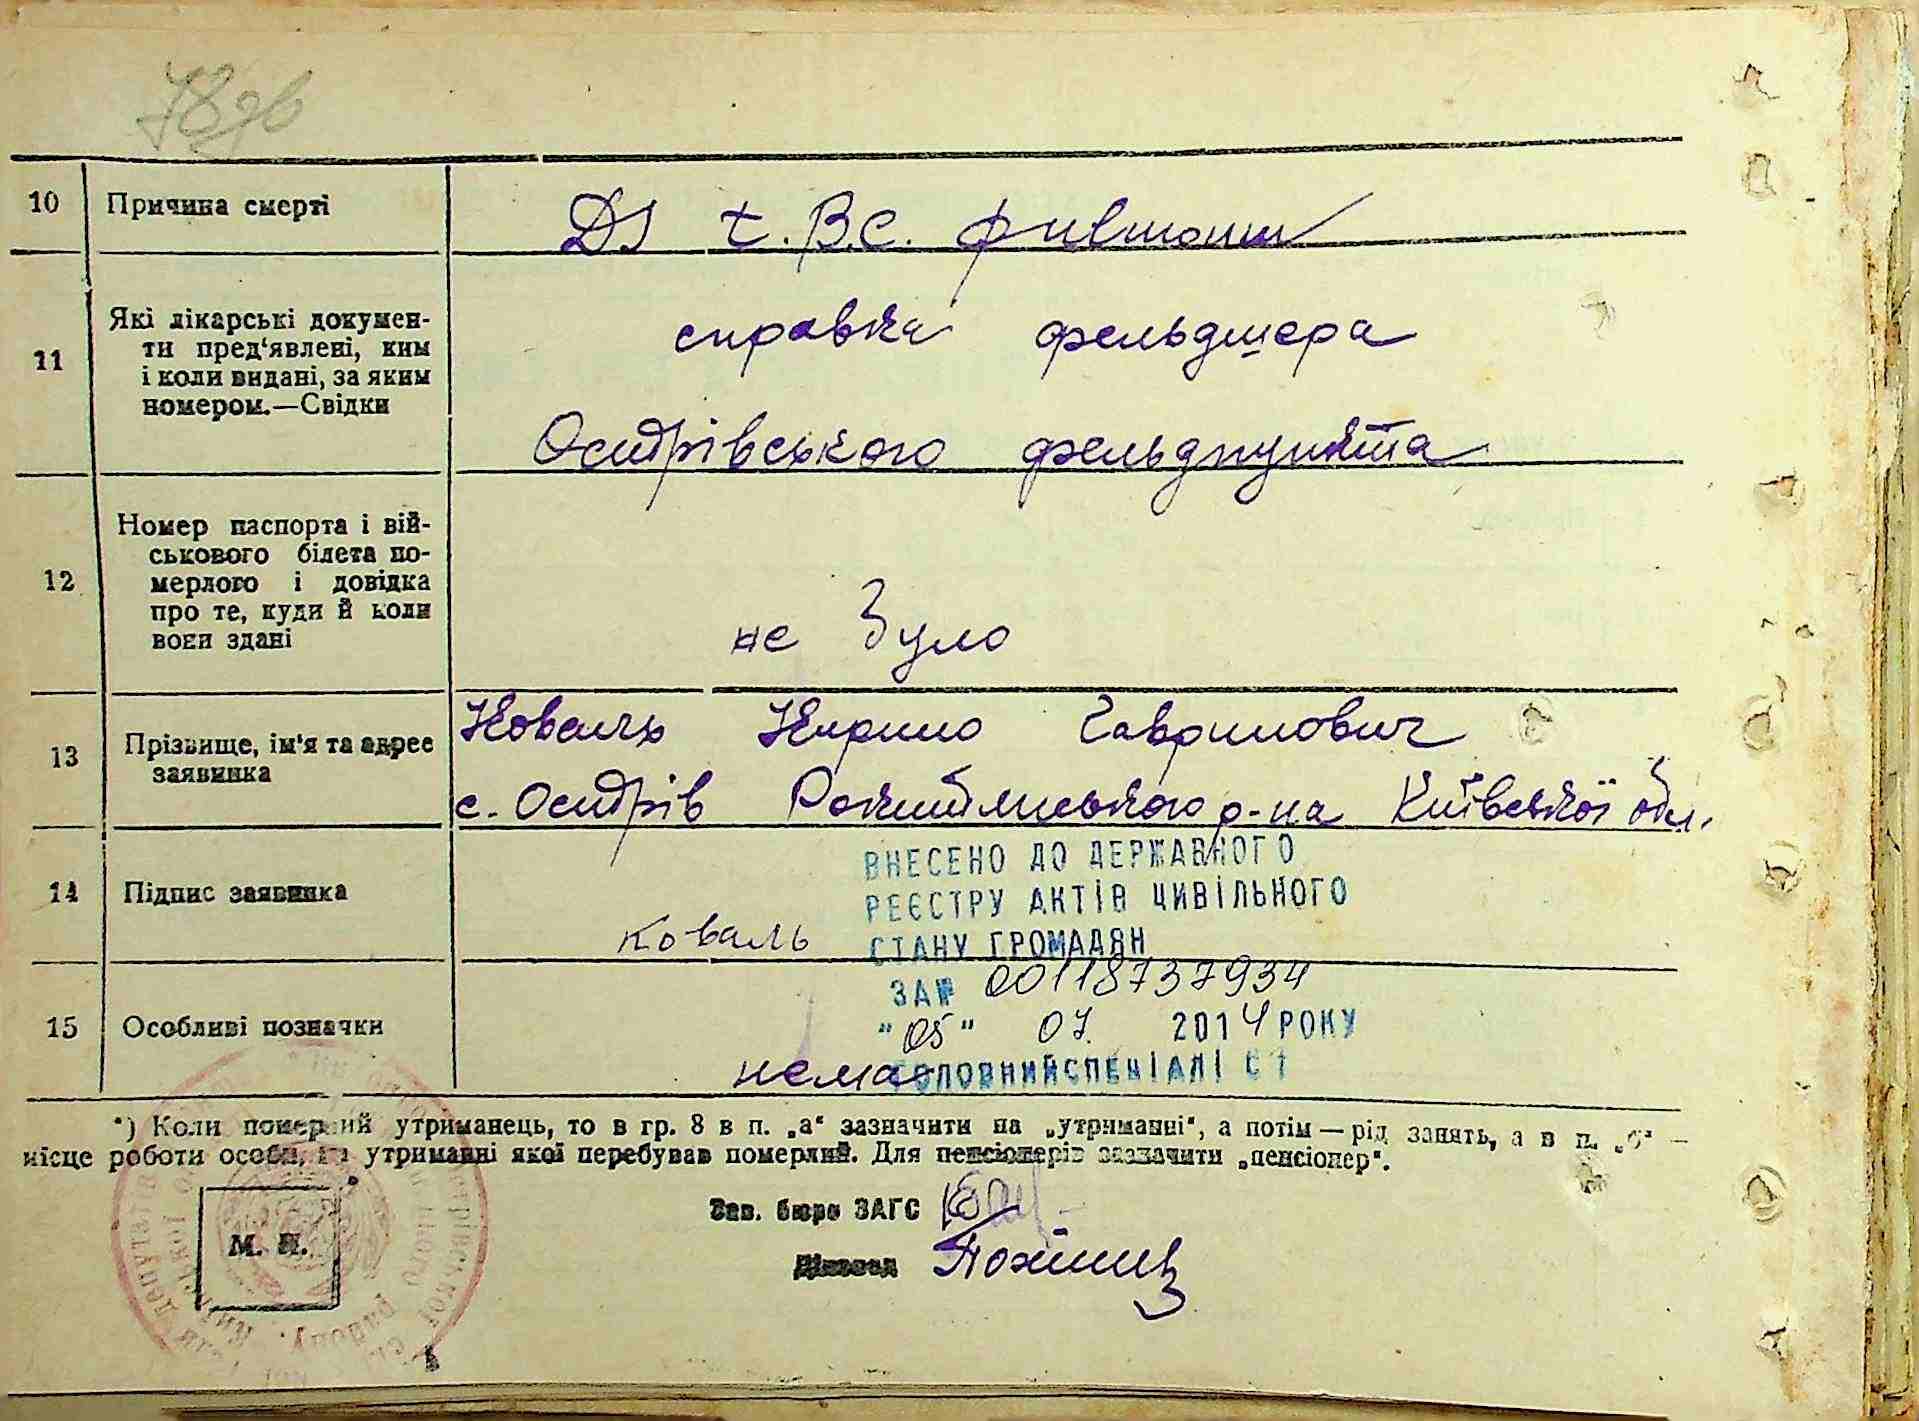 10 Причина смерті
DS t. В.С.
11 Які лікарські докумен-
ти пред'явлені, ким
і коли видані, за яким
номером.—Свідки
справка фельдшера
Острівського фельдпункта
12 Номер паспорта і вій-
ськового білета по-
мерлого і довідка
про те, куди й коли
вони здані
не було
13 Прізвище, ім'я та адрес
заявника
Коваль Кирило Гаврилович
с. Острів Рокитлиського р-на Київської обл.
14 Підпис заявника
Коваль
ВНЕСЕНО ДО ДЕРЖАВНОГО
РЕЄСТРУ АКТІВ ЦИВІЛЬНОГО
СТАНУ ГРОМАДЯН
ЗА № 00118737934
"05" 07. 2014 РОКУ
ГОЛОВНИЙ СПЕЦІАЛІСТ
15 Особливі позначки
немає
*) Коли померлий утриманець, то в гр. 8 в п. „а“ зазначити на „утриманні“, а потім — рід занять, а в п. „б“ —
місце роботи особи, на утриманні якої перебував померлий. Для пенсіонерів зазначити „пенсіонер“.
Зав. бюро ЗАГС
Діловод
М. П.